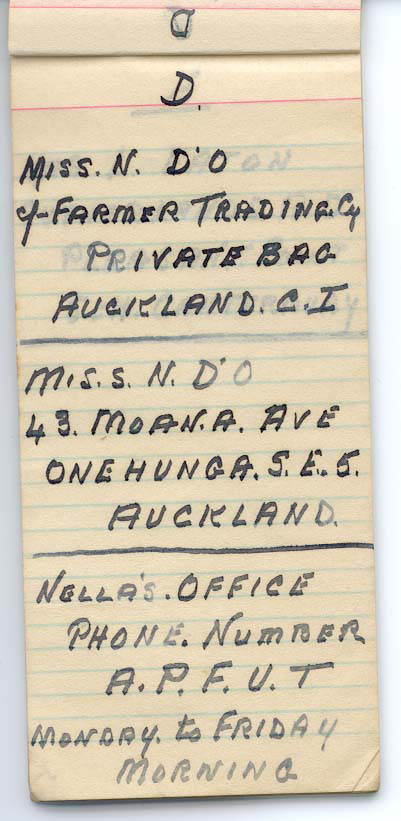 D
D.
MISS. N. D'O
c/- FARMER TRADING. Cy
PRIVATE BAG
AUCKLAND. C. I
MIS. S. N. D'O
43. MOAN.A. AVE
ONEHUNGA. S. E. 5.
AUCKLAND.
NELLA'S. OFFICE
PHONE. NUMBER
A. P. F. U. T
MONDAY. to FRIDAY
MORNING